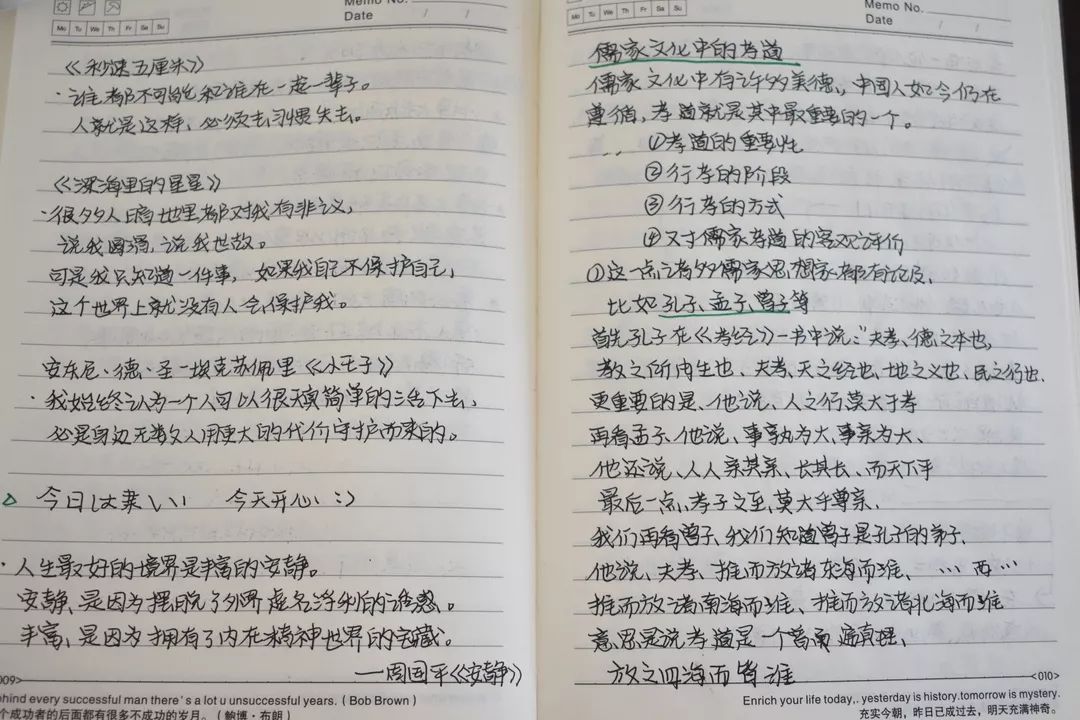 Memo No.
Date / /
Mo Tu We Th Fr Sa Su
《秒速五厘米》
·谁都不可能和谁在一起一辈子。
人就是这样，必须去习惯失去。
《深海里的星星》
·很多人暗地里都对我有非议，
说我圆滑，说我世故。
可是我只知道一件事，如果我自己不保护自己，
这个世界上就没有人会保护我。
安东尼·德·圣-埃克苏佩里《小王子》
·我始终认为一个人可以很天真简单的活下去，
必是身边无数人用更大的代价守护而来的。
今日 今天开心 :)
·人生最好的境界是丰富的安静。
安静、是因为摆脱了外界虚名浮利的诱惑。
丰富、是因为拥有了内在精神世界的宝藏。
—周国平《安静》
009>
hind every successful man there's a lot u unsuccessful years. ( Bob Brown )
个成功者的后面都有很多不成功的岁月。（鲍博·布朗）
Memo No.
Date / /
Mo Tu We Th Fr Sa Su
儒家文化中的孝道
儒家文化中有许多美德，中国人如今仍在
遵循，孝道就是其中最重要的一个。
①孝道的重要性
②行孝的阶段
③行孝的方式
④对儒家孝道的客观评价
①这一点诸多儒家思想家都有论及，
比如孔子、孟子、曾子等
首先孔子在《孝经》一书中说："夫孝、德之本也，
教之所由生也、夫孝、天之经也、地之义也、民之行也、
更重要的是、他说、人之行莫大于孝
再看孟子、他说、事孰为大、事亲为大、
他还说、人人亲其亲、长其长、而天下平
最后一点、孝子之至、莫大乎尊亲、
我们再看曾子、我们知道曾子是孔子的弟子、
他说、夫孝、推而放诸东海而准、…西…
推而放诸南海而准、推而放诸北海而准
意思是说孝道是一个普遍真理、
放之四海而皆准
<010>
Enrich your life today,. yesterday is history.tomorrow is mystery.
充实今朝，昨日已成过去，明天充满神奇。